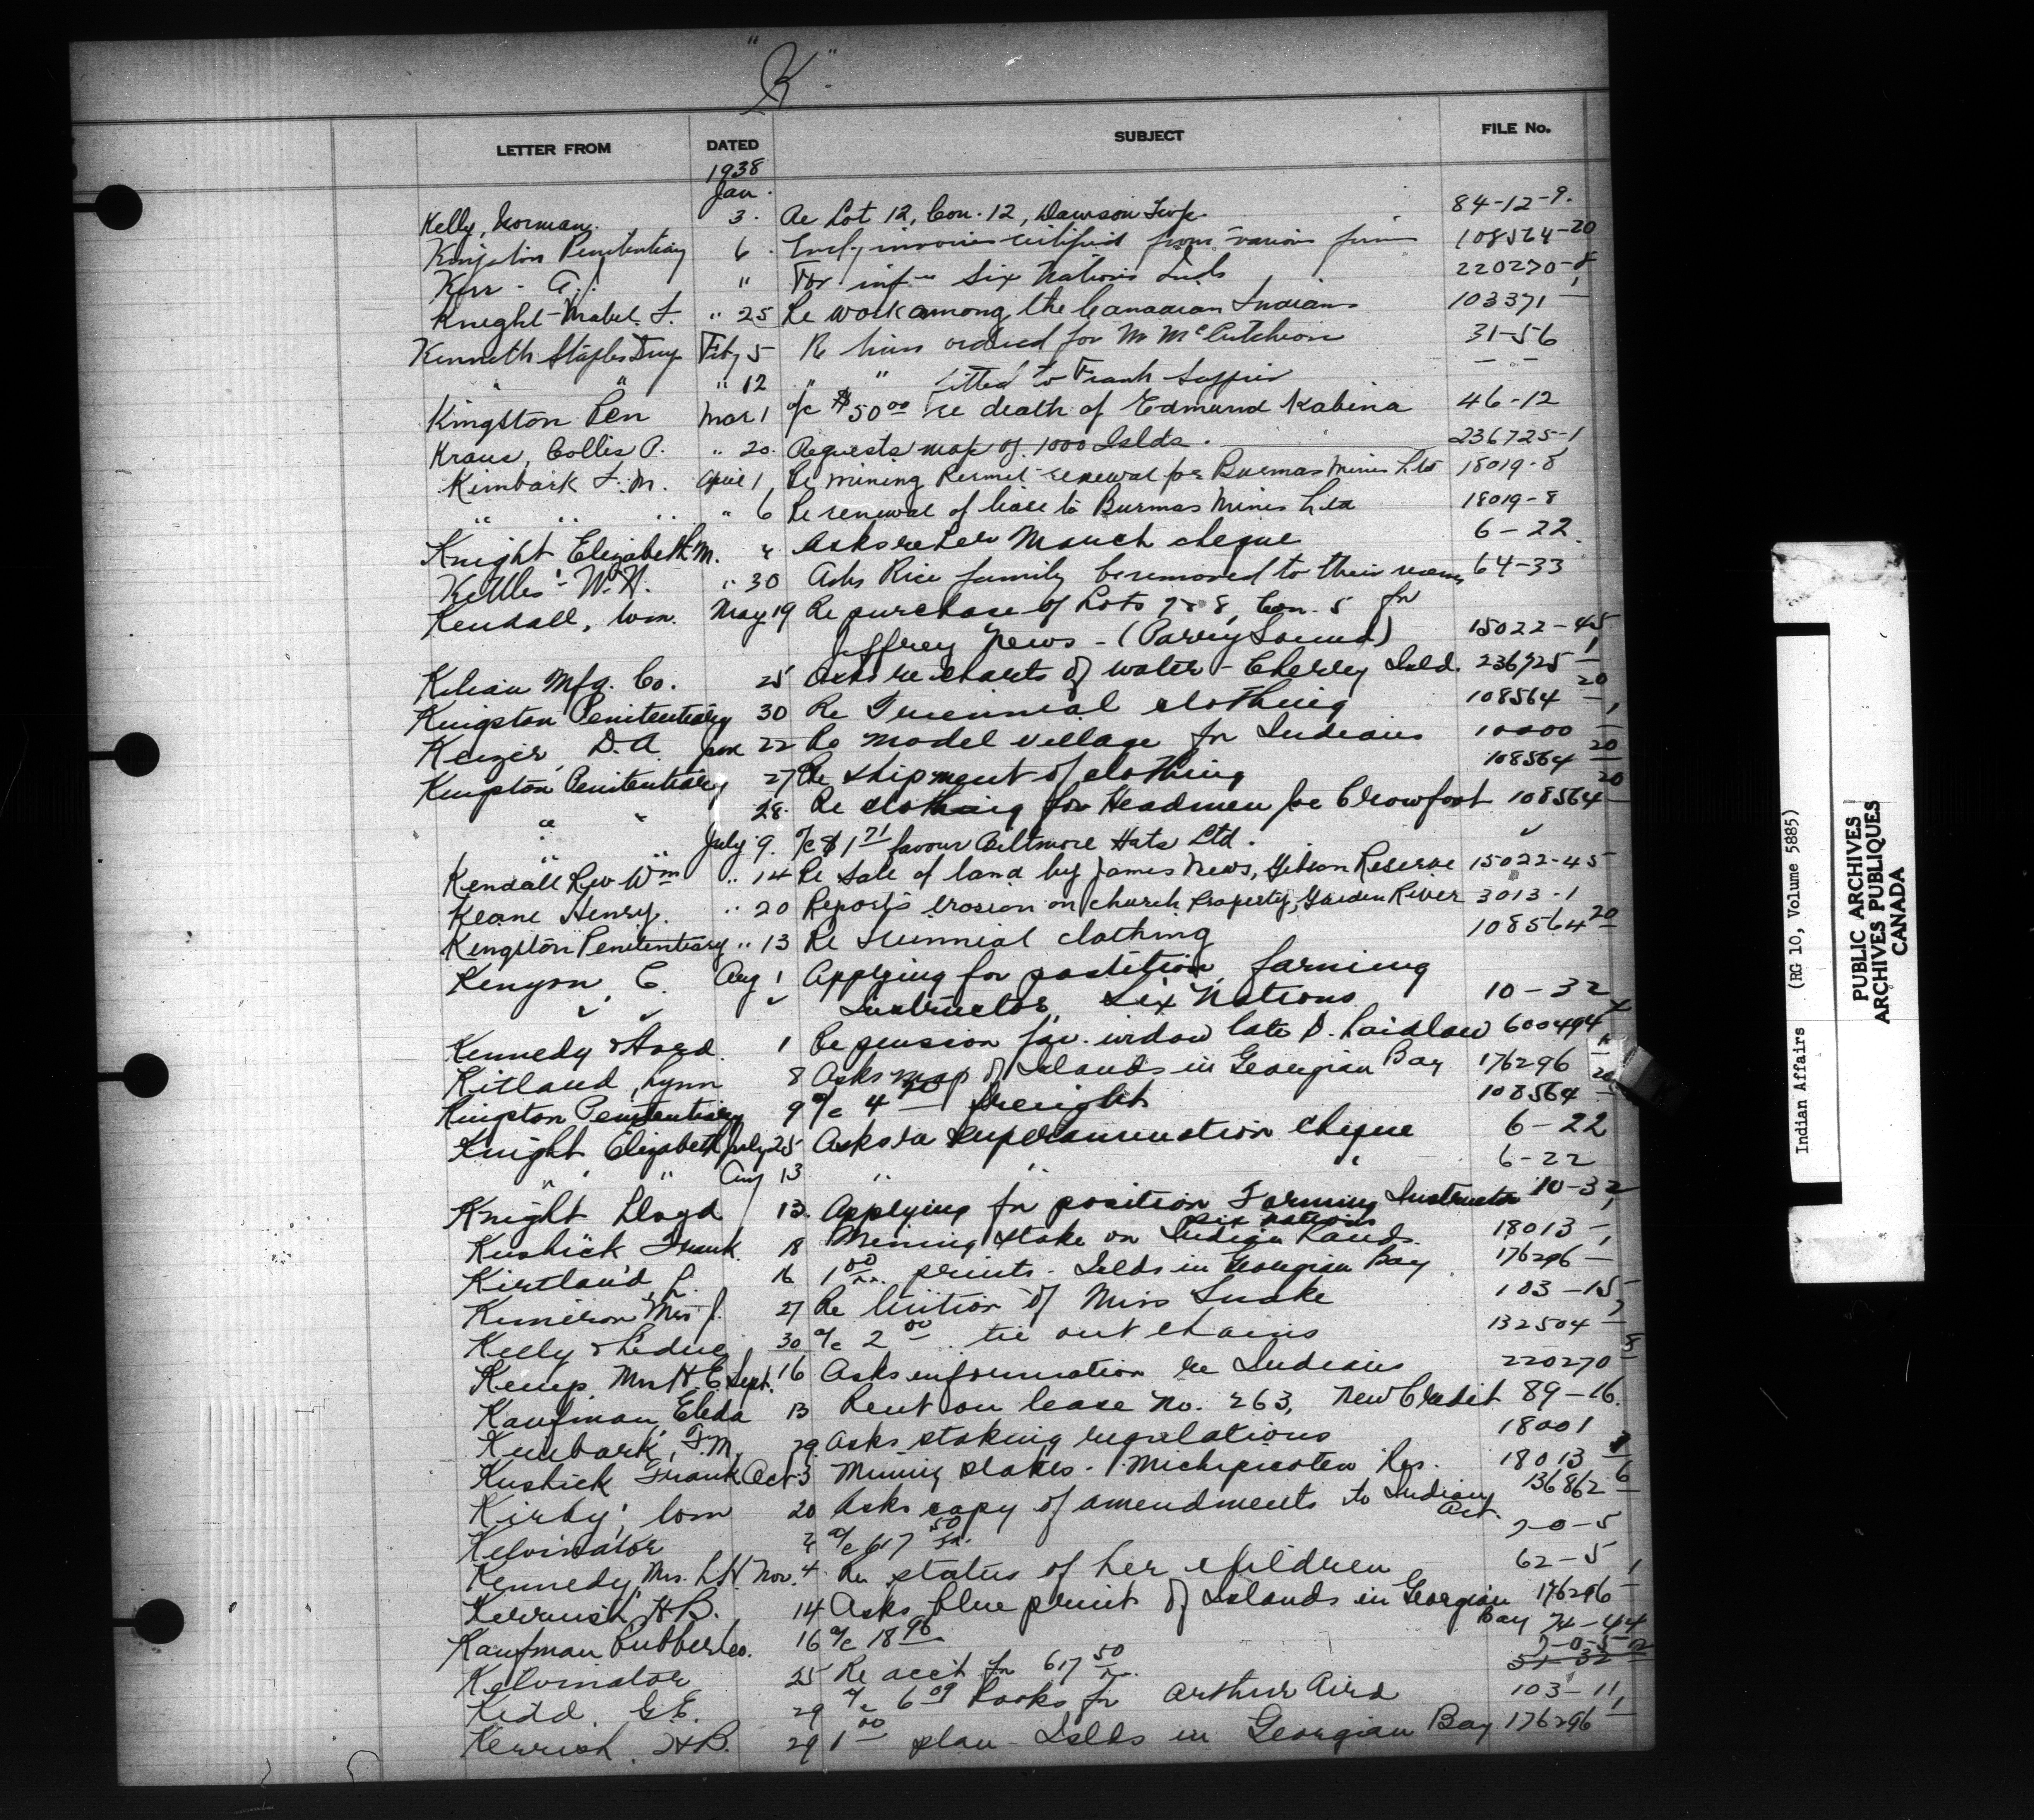 "K"
LETTER FROM DATED SUBJECT FILE No.
1938
Jan.
Kelly, Norman. 3. Re Lot 12, Con. 12, Dawson Twp. 84-12-9.
Kingston Penitentiary 6. Encl. invoices certified from various firms 108564-20
Kerr - A. " For inf- Six Nations Inds 220270-8
Knight - Mabel. F. " 25 Re work among the Canadian Indians 103371-1
Kenneth Staples Drug Feby 5 Re ordered for Mr McCutcheon 31-56
" " " 12 " " fitted to Frank - -
Kingston Pen Mar 1 a/c $50 00 re death of Edmund Kabina 46-12
Kraus, Collis P. " 20. Requests map of 1000 Islds. 236725-1
Kimbark F. M. April 1, Re mining Permit renewal for Burmas Mines Ltd 18019-8
" " " " 6 Re renewal of lease to Burmas Mines Ltd 18019-8
Knight Elizabeth M. " Asks re her March cheque 6-22.
Kettles - W. H. " 30 Asks Rice family be removed to their 64-33
Kendall, Wm. May 19 Re purchase of Lots 7 & 8, Con. 5 for
Jeffrey News - (Parry Sound) 15022-45
Kilian Mfg. Co. 25 Asks re charts of water - Cherry Isld. 236725-1
Kingston Penitentiary 30 Re Triennial clothing 108564-20
D. A. June 22 Re model village for Indians 10000-1
Kingston Penitentiary 27 Re shipment of clothing 108564-20
" " 28. Re clothing for Headmen for Crowfoot 108564-20
July 9. a/c $1 71 favour Biltmore Hats Ltd. "
Kendall Rev Wm " 14 Re sale of land by James News, Gibson Reserve 15022-45
Keane Henry. " 20 Reports erosion on church Property, Garden River 3013-1
Kingston Penitentiary " 13 Re triennial clothing 108564-20
Kenyon, C. Aug 1 Applying for postition farming
" " " Instructor, Six Nations 10-32
Kennedy & Ford. 1 Re pension for widow late D. Laidlaw 600494
Kitland, Lynn 8 Asks map of Islands in Georgian Bay 176296-1
Kingston Penitentiary 9 a/c 4 freight 108564-20
Knight Elizabeth July 25 Asks re superannuation cheque 6-22
" " Aug 13 " " " 6-22
Knight Lloyd 13. Applying for position Farming Instructor 10-32
Six Nations
Kushick Frank. 18 Mining stake on Indian Lands. 18013-1
Kirtland, L. 16 1 00 prints - Islds in Georgian Bay 176296-1
Mrs J. 27 Re tuition of Miss Snake 103-15
Kelly & Leduc 30 a/c 2 00 tie out chains 132504-7
Kemp, Mrs H. E. Sept. 16 Asks information re Indians 220270-8
Kaufman, Eleda 13 Rent on lease No. 263, New Credit 89-16.
Kimbark, F. M. 29. Asks staking regulations 18001
Kushick Frank Oct 3 Mining stakes - Michipicoten Res. 18013
Kirby, Wm 20 Asks copy of amendments to Indian 136862-6
Act.
Kelvinator a/c 617 50 7-0-5
Kennedy, Mrs. L. H. Nov. 4 Re status of her children 62-5
Kerrush, H. B. 14 Asks blue print of Islands in Georgian 176296-1
Bay
Kaufman Rubber Co. 16 a/c 18 96 74-44
Kelvinator 25 Re acct for 617 50 7-0-5
Kidd, G. E. 29 a/c 6 09 books for Arthur Aird 103-11
Kerrish, H. B. 29 1 00 plan - Islds in Georgian Bay 176296-1
Indian Affairs (RG 10, Volume 5885)
PUBLIC ARCHIVES
ARCHIVES PUBLIQUES
CANADA